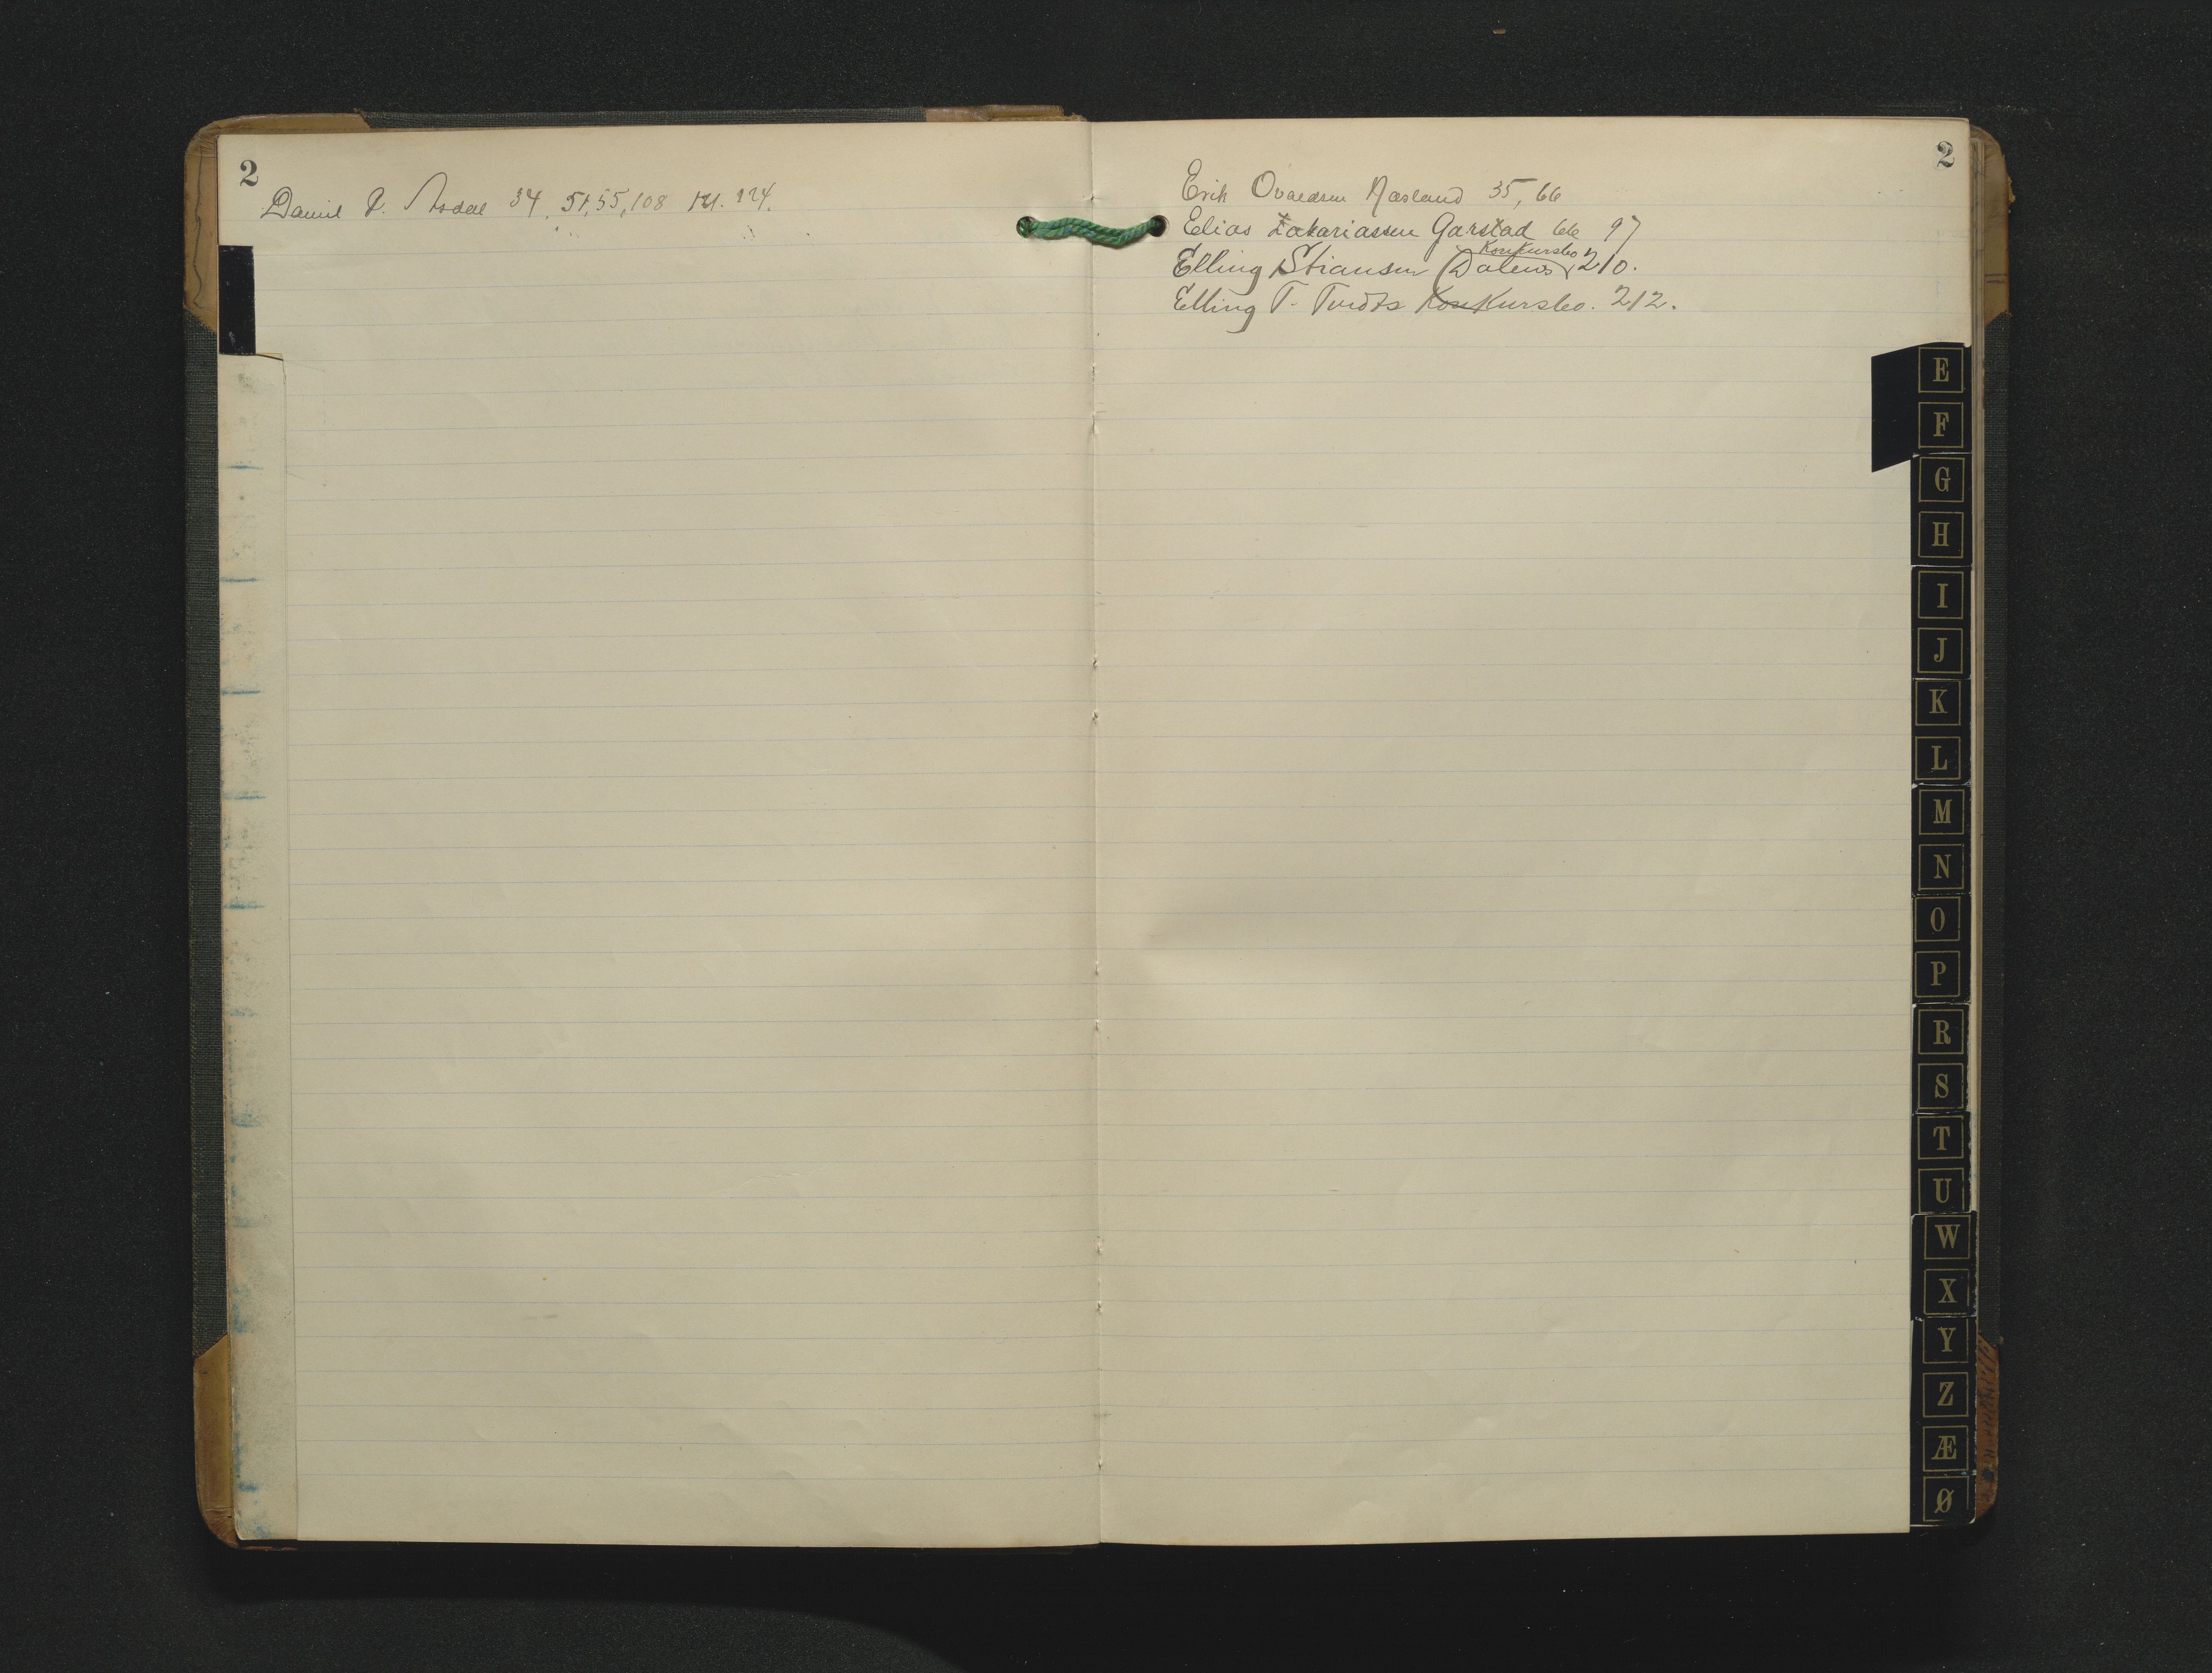 2
Daniel P. Asdal 34, 51, 55, 108 121. 124.
2
Erik Næsland 35, 66
Elias Zakariassen Garstad 66 97
Konkursbo
Elling Stiansen (Dalens) 210.
Elling T. Konkursbo. 212.
E
F
G
H
I
J
K
L
M
N
O
P
R
S
T
U
W
X
Y
Z
Æ
Ø